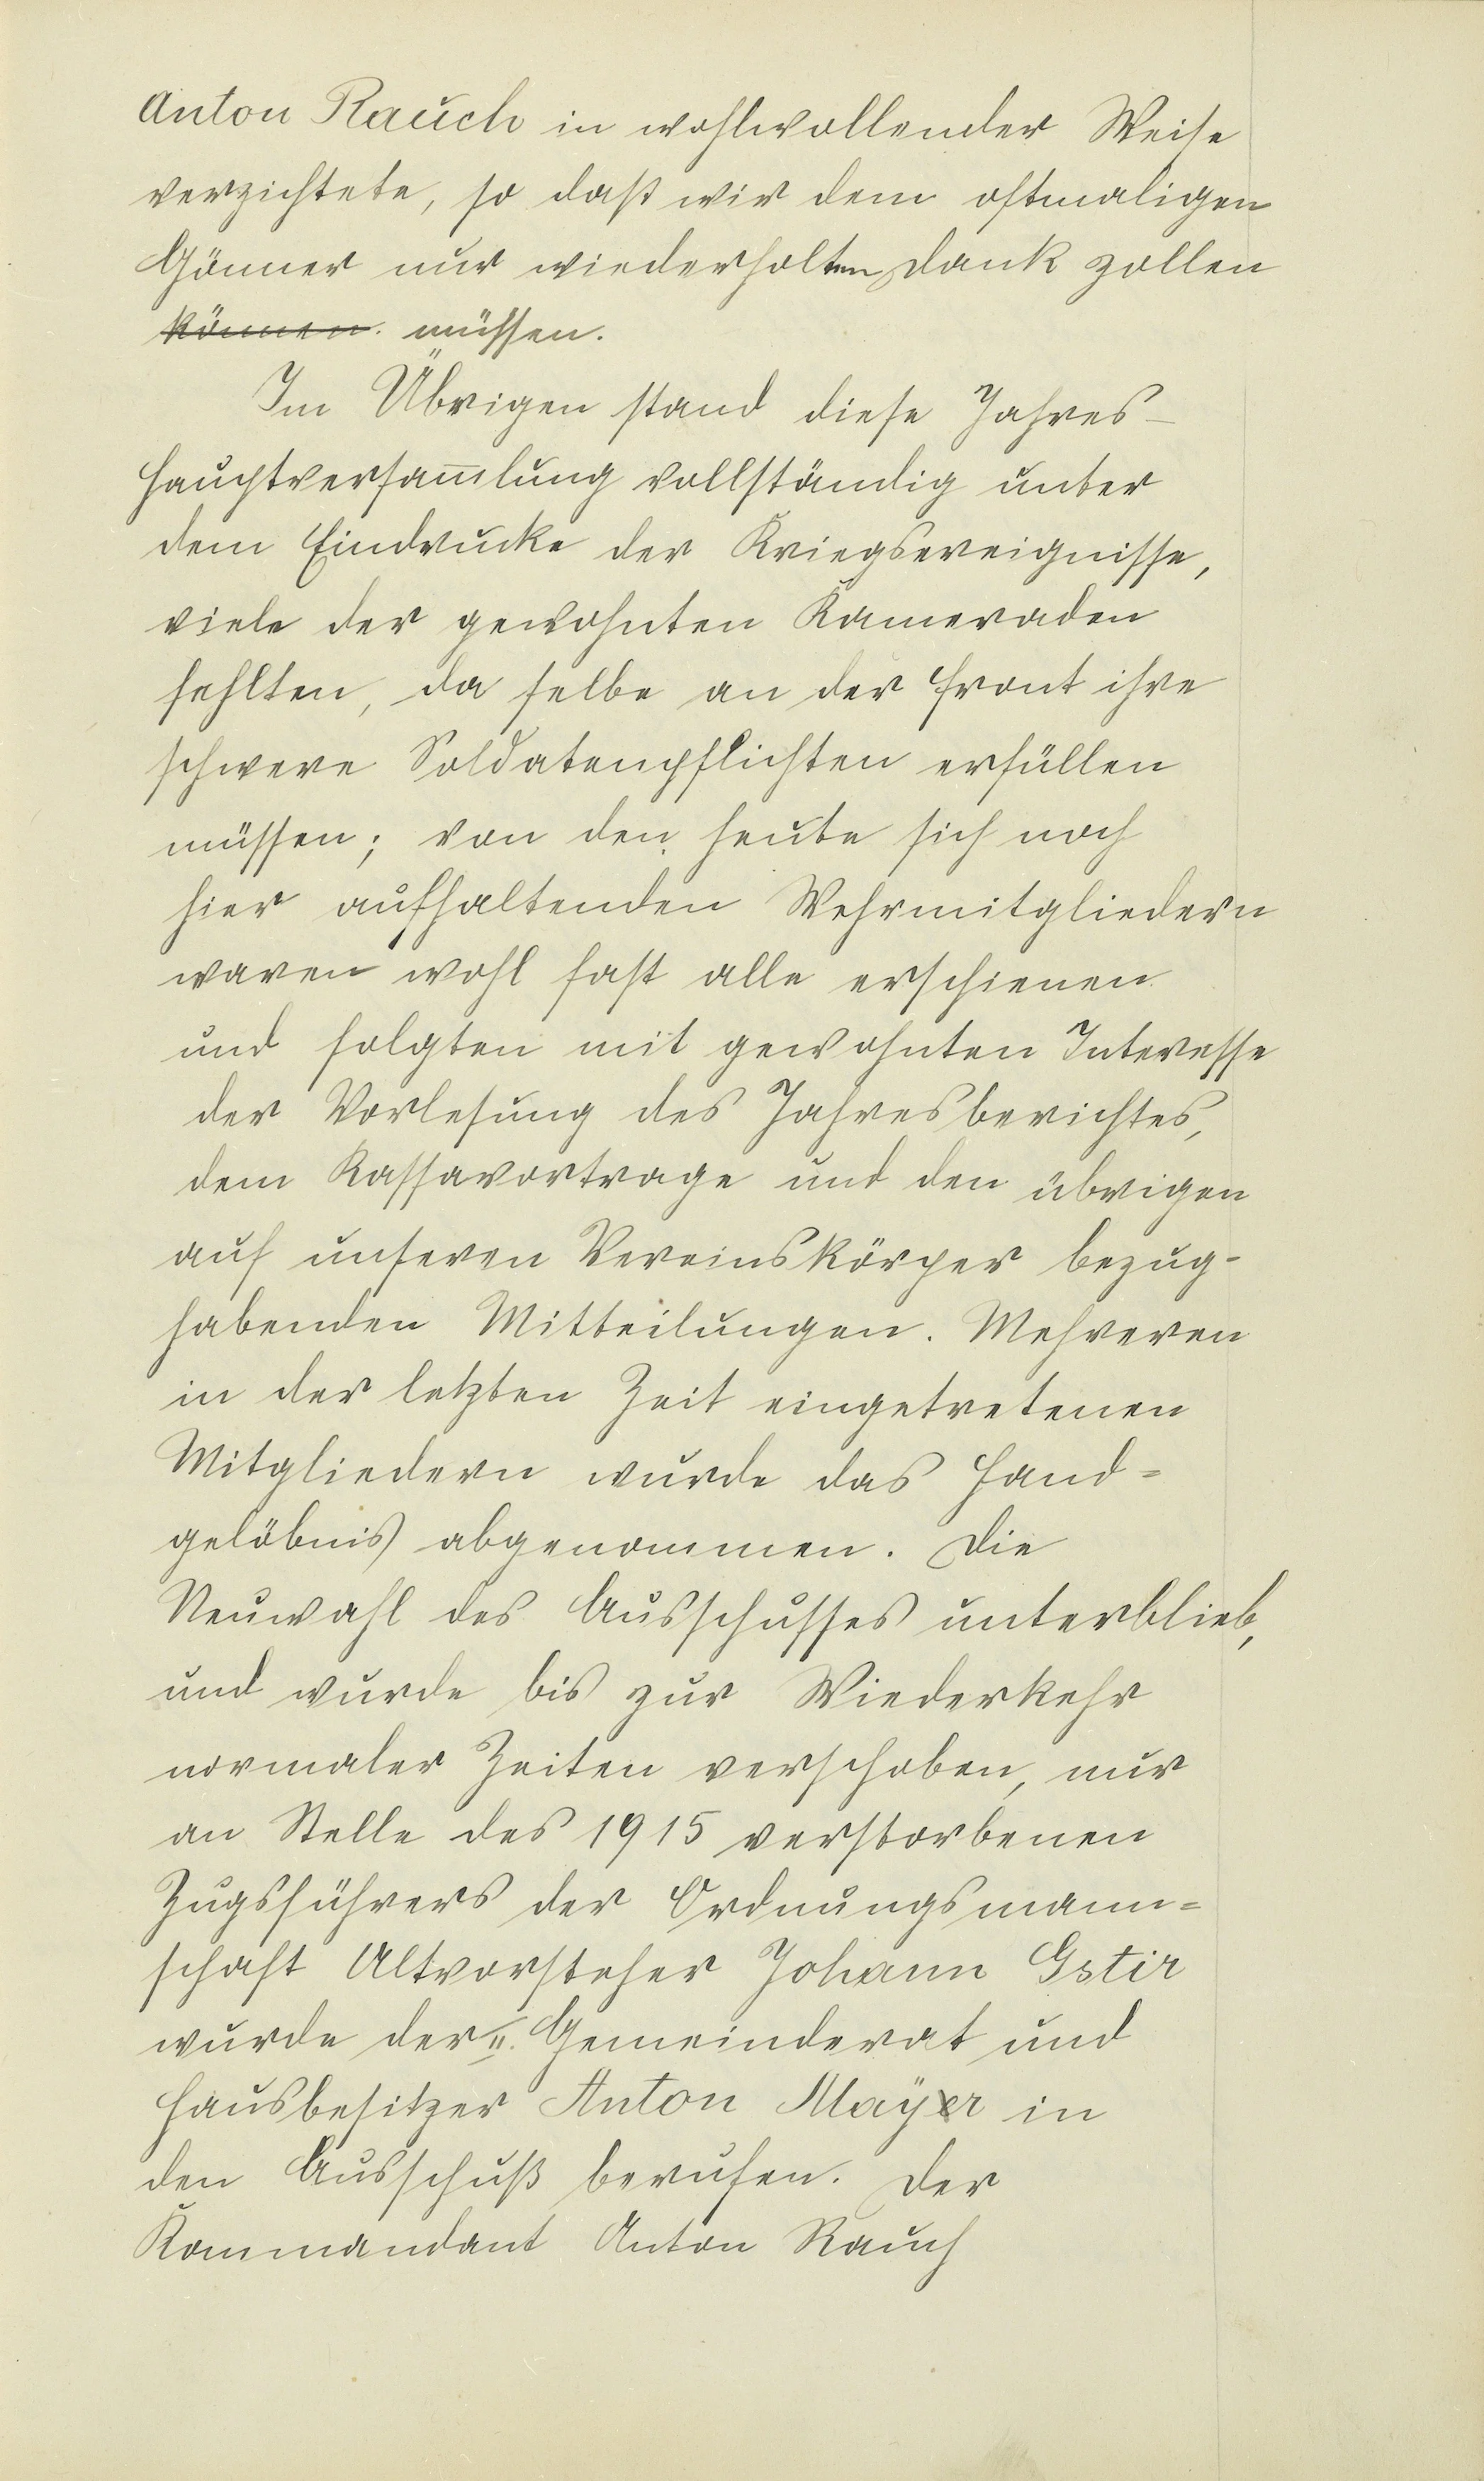 Anton Rauch in wohlwollender Weise
verzichtete, so daß wir dem oftmaligen
Gönner nur wiederholten Dank zollen
können. müssen.
Im Übrigen stand diese Jahres-
hauptversam̅lung vollständig unter
dem Eindrucke der Kriegsereignisse,
viele der gewohnten Kameraden
fehlten, da selbe an der Front ihre
schwere Soldatenpflichten erfüllen
müssen; von den heute sich noch
hier aufhaltenden Wehrmitgliedern
waren wohl fast alle erschienen
und folgten mit gewohnten Interesse
der Vorlesung des Jahresberichtes,
dem Kassavortrage und den übrigen
auf unseren Vereinskörper bezug-
habenden Mitteilungen. Mehreren
in der letzten Zeit eingetretenen
Mitgliedern wurde das Hand=
gelöbnis abgenommen. Die
Neuwahl des Ausschusses unterblieb,
und wurde bis zur Wiederkehr
normaler Zeiten verschoben, nur
an Stelle des 1915 verstorbenen
Zugsführers der Ordnungsmann=
schaft Altvorsteher Johann Gstir
wurde der II. Gemeinderat und
Hausbesitzer Anton Mayr in
den Ausschuß berufen. Der
Kommandant Anton Rauch